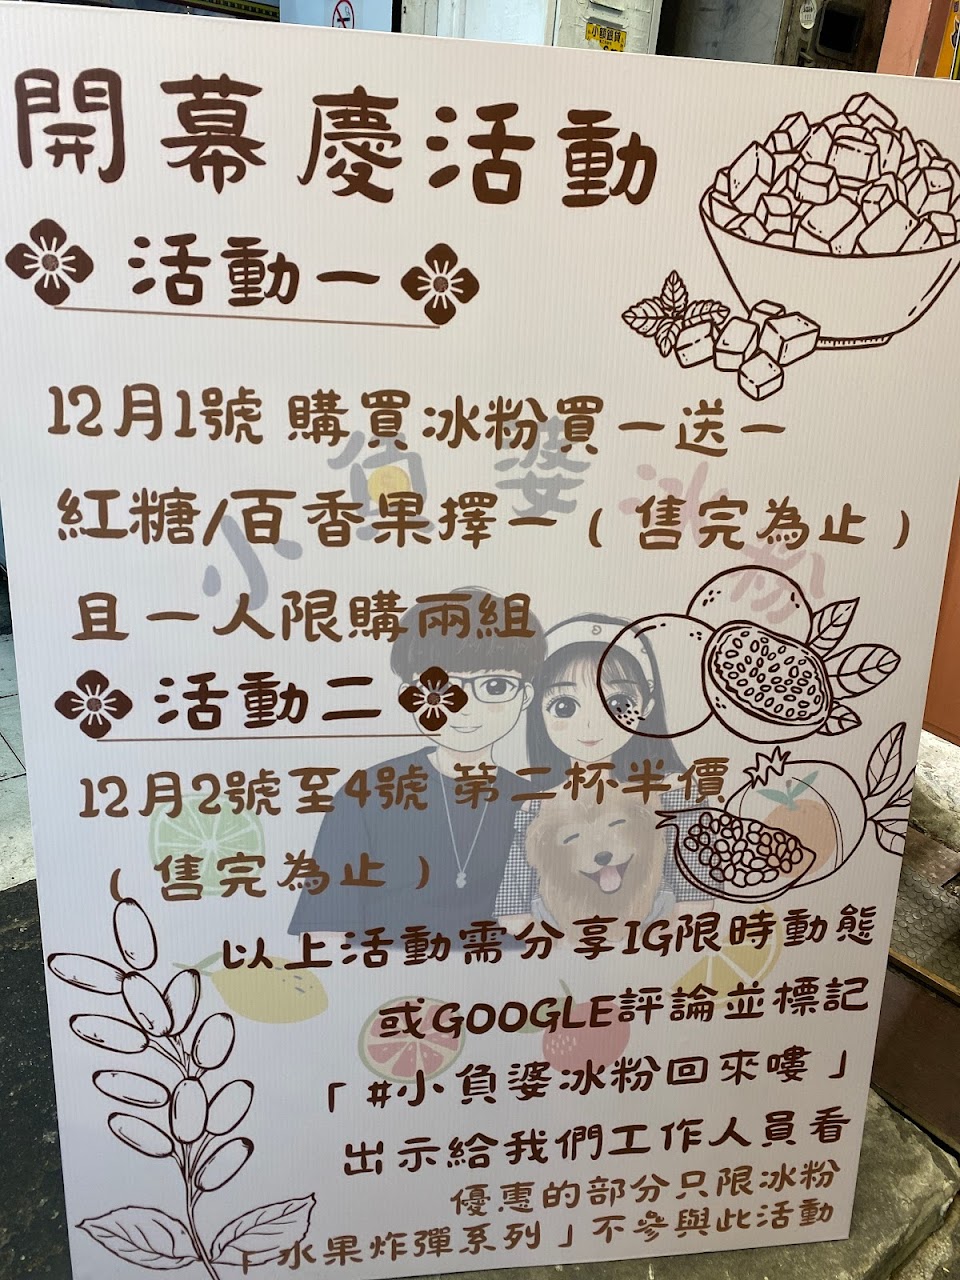 開幕慶活動
活動一
12月1號 購買冰粉買一送一
紅糖/百香果擇一(售完為止)
且一人限購兩組
小負婆冰粉
活動二
12月2號至4號 第二杯半價
(售完為止)
以上活動需分享IG限時動態
或GOOGLE評論並標記
「#小負婆冰粉回來嘍」
出示給我們工作人員看
優惠的部分只限冰粉
「水果炸彈系列」不參與此活動